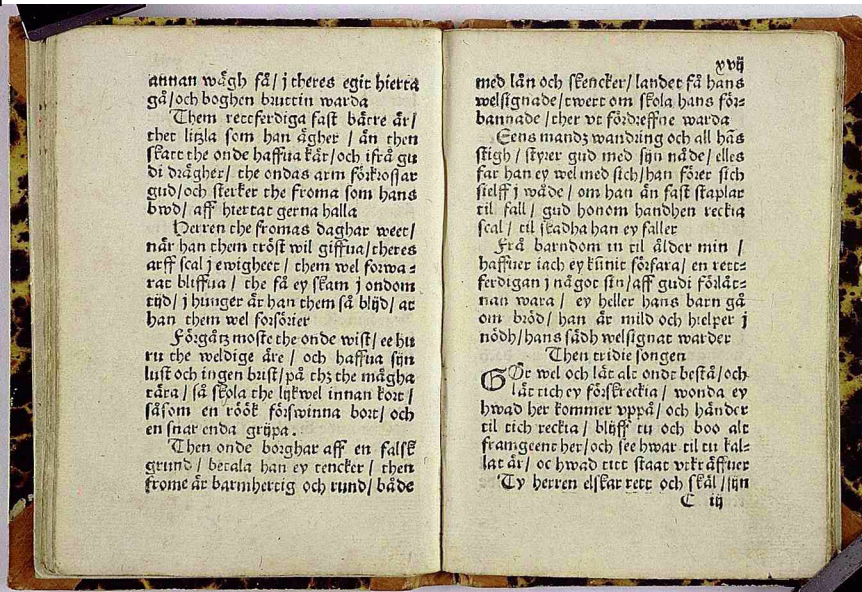 annan wågh få/ j theres egit hierta
gå/ och boghen bruttin warda
Them rettferdiga fast bätre är/
thet litzla som han ägher / än then
skatt the onde haffua kär/ och ifrå gu
di drägher/ the ondas arm förkrossar
gud/ och sterker the froma som hans
bwd/ aff hiertat gerna halla
Herren the fromas daghar weet/
när han them tröst wil giffua/ theres
arff scal j ewigheet / them wel forwa-
rat bliffua / the få ey skam j ondom
tijd/ j hunger är han them så blijd/ at
han them wel forsörier
Förgåtz moste the onde wist/ ee hu
ru the weldige äre / och haffua sijn
lust och ingen brist/ på thz the mågha
tära/ så skola the lijkwel innan kort/
såsom en röök förswinna bort/ och
en snar enda grijpa.
Then onde borghar aff en falsk
grund / betala han ey tencker / then
frome är barmhertig och rund/ både
xvij
med lån och skencker/ landet få hans
welsignade/ twert om skola hans för-
bannade / ther vt fördreffne warda
Eens mandz wandring och all hãs
stigh / styrer gud med sijn nåde/ elles
far han ey wel med sich/ han förer sich
sielff j wåde / om han än fast staplar
til fall / gud honom handhen reckia
scal / til skadha han ey faller
Frå barndom in til ålder min /
haffuer iach ey kũnit förfara/ en rett-
ferdigan j något sin/ aff gudi förlåt-
nan wara / ey heller hans barn gå
om bröd/ han är mild och hielper j
nödh/ hans sädh welsignat warder
Then tridie songen
GÖr wel och låt alt ondt bestå/ och
låt tich ey förskreckia / wonda ey
hwad her kommer vppå/ och händer
til tich reckia / blijff tu och boo alt
framgeent her/ och see hwar til tu kal-
lat är/ oc hwad titt staat vtkräffuer
Ty herren elskar rett och skäl / sijn
C iij